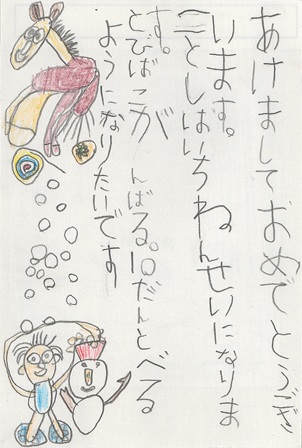 あけましておめでとうござ
います。
ことしはいちねんせいになりま
す。
とびばこがんばる。10だんとべる
ようになりたいです